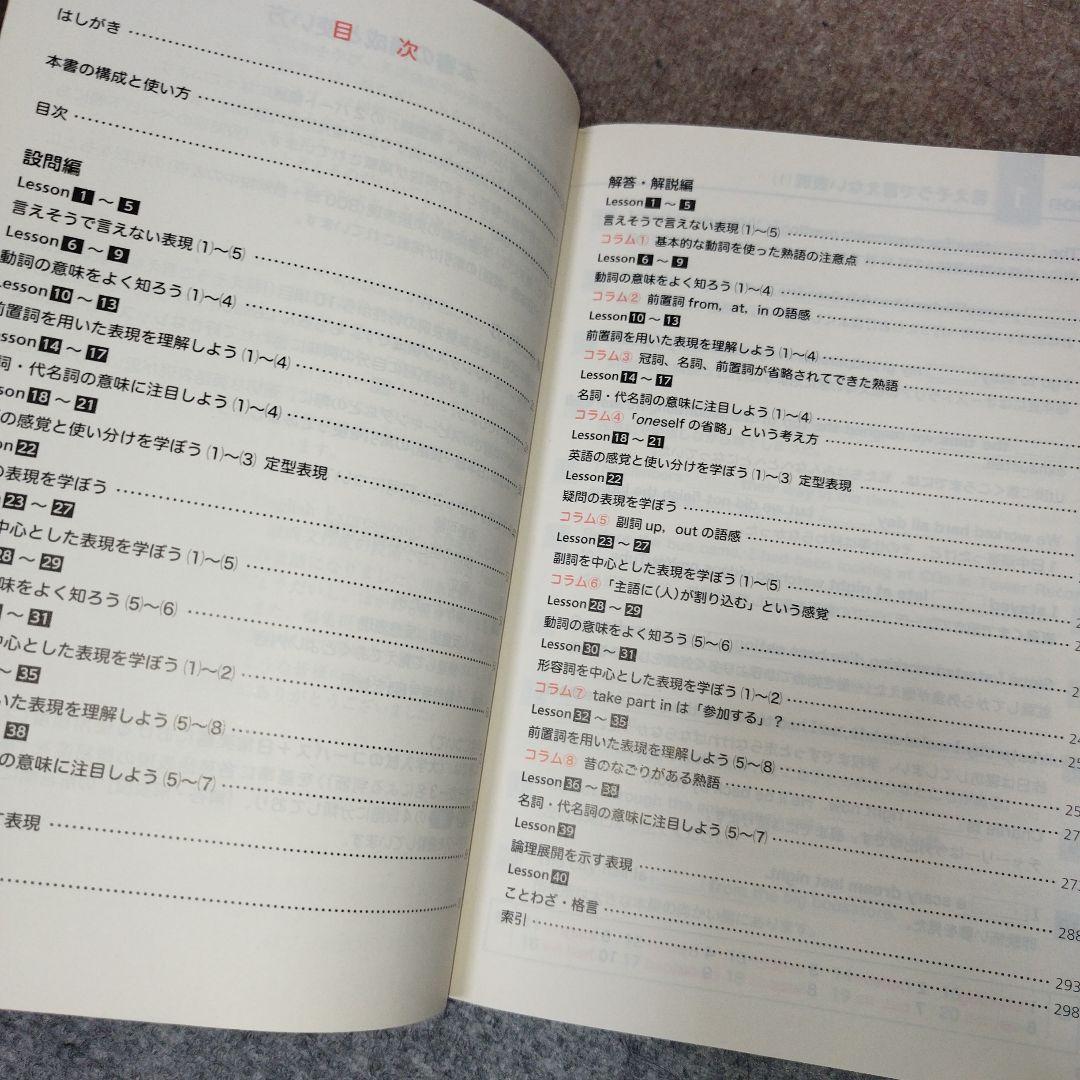 目 次
はしがき
本書の構成と使い方
目次
設問編
Lesson 1 ～ 5
言えそうで言えない表現 (1)～(5)
Lesson 6 ～ 9
動詞の意味をよく知ろう (1)～(4)
Lesson 10 ～ 13
前置詞を用いた表現を理解しよう (1)～(4)
esson 14 ～ 17
詞・代名詞の意味に注目しよう (1)～(4)
son 18 ～ 21
の感覚と使い分けを学ぼう (1)～(3) 定型表現
on 22
の表現を学ぼう
23 ～ 27
中心とした表現を学ぼう (1)～(5)
28 ～ 29
味をよく知ろう (5)～(6)
～ 31
心とした表現を学ぼう (1)～(2)
～ 35
いた表現を理解しよう (5)～(8)
38
の意味に注目しよう (5)～(7)
す表現
解答・解説編
Lesson 1 ～ 5
言えそうで言えない表現 (1)～(5)
コラム① 基本的な動詞を使った熟語の注意点
Lesson 6 ～ 9
動詞の意味をよく知ろう (1)～(4)
コラム② 前置詞 from, at, in の語感
Lesson 10 ～ 13
前置詞を用いた表現を理解しよう (1)～(4)
コラム③ 冠詞、名詞、前置詞が省略されてできた熟語
Lesson 14 ～ 17
名詞・代名詞の意味に注目しよう (1)～(4)
コラム④ 「oneself の省略」という考え方
Lesson 18 ～ 21
英語の感覚と使い分けを学ぼう (1)～(3) 定型表現
Lesson 22
疑問の表現を学ぼう
コラム⑤ 副詞 up, out の語感
Lesson 23 ～ 27
副詞を中心とした表現を学ぼう (1)～(5)
コラム⑥ 「主語に(人)が割り込む」という感覚
Lesson 28 ～ 29
動詞の意味をよく知ろう (5)～(6)
Lesson 30 ～ 31
形容詞を中心とした表現を学ぼう (1)～(2)
コラム⑦ take part in は「参加する」？
Lesson 32 ～ 35
前置詞を用いた表現を理解しよう (5)～(8)
コラム⑧ 昔のなごりがある熟語
Lesson 36 ～ 38
名詞・代名詞の意味に注目しよう (5)～(7)
Lesson 39
論理展開を示す表現 273
Lesson 40
ことわざ・格言 288
索引 293
298